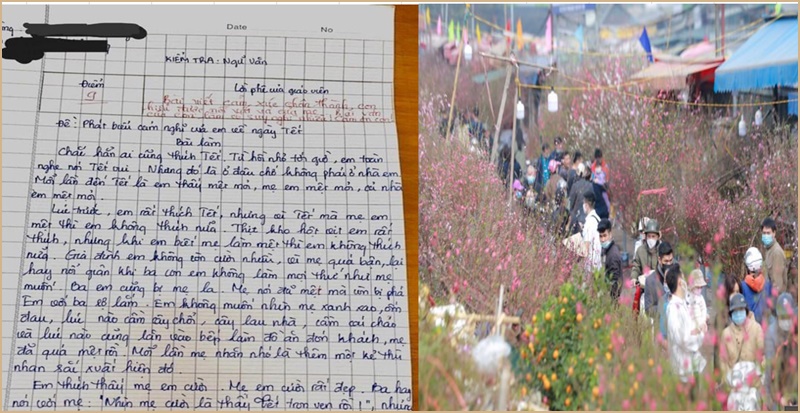 Date No
KIỂM TRA: Ngữ Văn
Điểm Lời phê của giáo viên
9 Bài viết cảm xúc chân thành, con
Đề: Phát biểu cảm nghĩ của em về ngày Tết
Bài làm
Chắc hẳn ai cũng thích Tết. Từ hồi nhỏ tới giờ, em toàn
nghe nói Tết vui. Nhưng đó là ở đâu chứ không phải ở nhà em
Mỗi lần đến Tết là em thấy mệt mỏi, mẹ em mệt mỏi, cả nhà
em mệt mỏi.
Lúc trước, em rất thích Tết, nhưng vì Tết mà mẹ em
mệt thì em không thích nữa. Thịt kho hột vịt em rất
thích, nhưng khi em biết mẹ làm mệt thì em không thích
nữa. Gia đình em không còn cười nhiều, vì mẹ quá bận, lại
hay nổi giận khi ba con em không làm mọi thứ như mẹ
muốn. Ba em cũng bị mẹ la. Mẹ nói đã mệt mà còn bị phá
Em với ba sợ lắm. Em không muốn nhìn mẹ xanh xao, ốm
đau, lúc nào cầm cây chổi, cây lau nhà, cầm cái chảo
và lúc nào cũng lẩn vào bếp làm đồ ăn đón khách, mẹ
đã quá mệt rồi. Mỗi lần mẹ nhăn nhó là thêm một kẻ thù
nhan sắc xuất hiện đó.
Em thích thấy mẹ em cười. Mẹ em cười rất đẹp. Ba hay
nói với mẹ: "Nhìn mẹ cười là thấy Tết trọn vẹn rồi!", nhưng